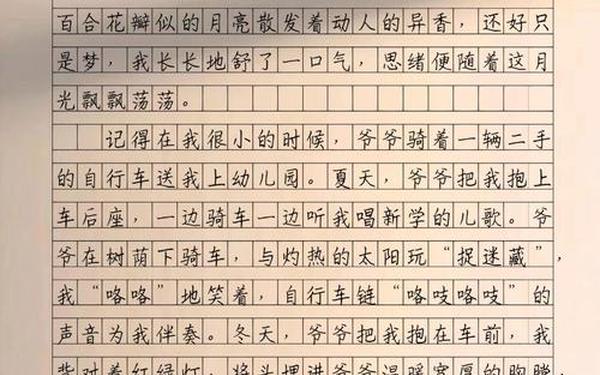 百合花瓣似的月亮散发着动人的异香，还好只
是梦，我长长地舒了一口气，思绪便随着这月
光飘飘荡荡。
记得在我很小的时候，爷爷骑着一辆二手
的自行车送我上幼儿园。夏天，爷爷把我抱上
车后座，一边骑车一边听我唱新学的儿歌。爷
爷在树荫下骑车，与灼热的太阳玩“捉迷藏”，
我“咯咯”地笑着，自行车链“咯吱咯吱”的
声音为我伴奏。冬天，爷爷把我抱在车前，我
背对着红绿灯，将头埋进爷爷温暖宽厚的胸膛，